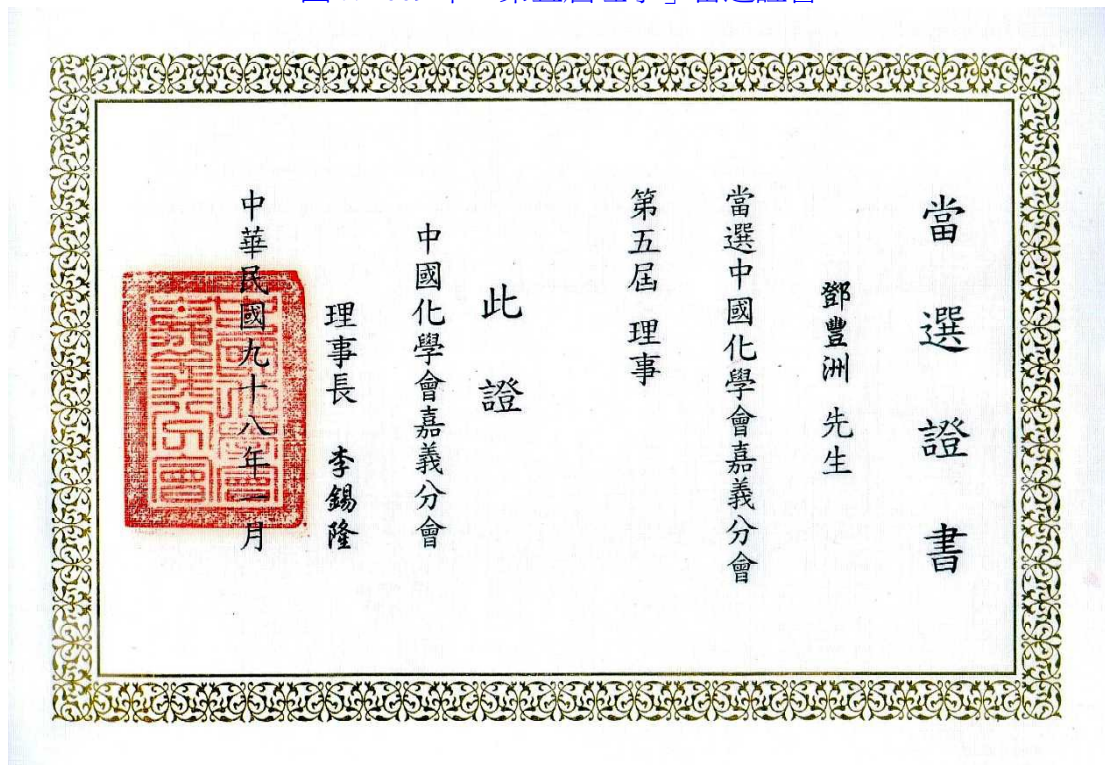 當選證書
鄧豐洲 先生
當選中國化學會嘉義分會
第五屆 理事
此證
中國化學會嘉義分會
理事長 李錫隆
中華民國九十八年一月
中國化學會
嘉義分會